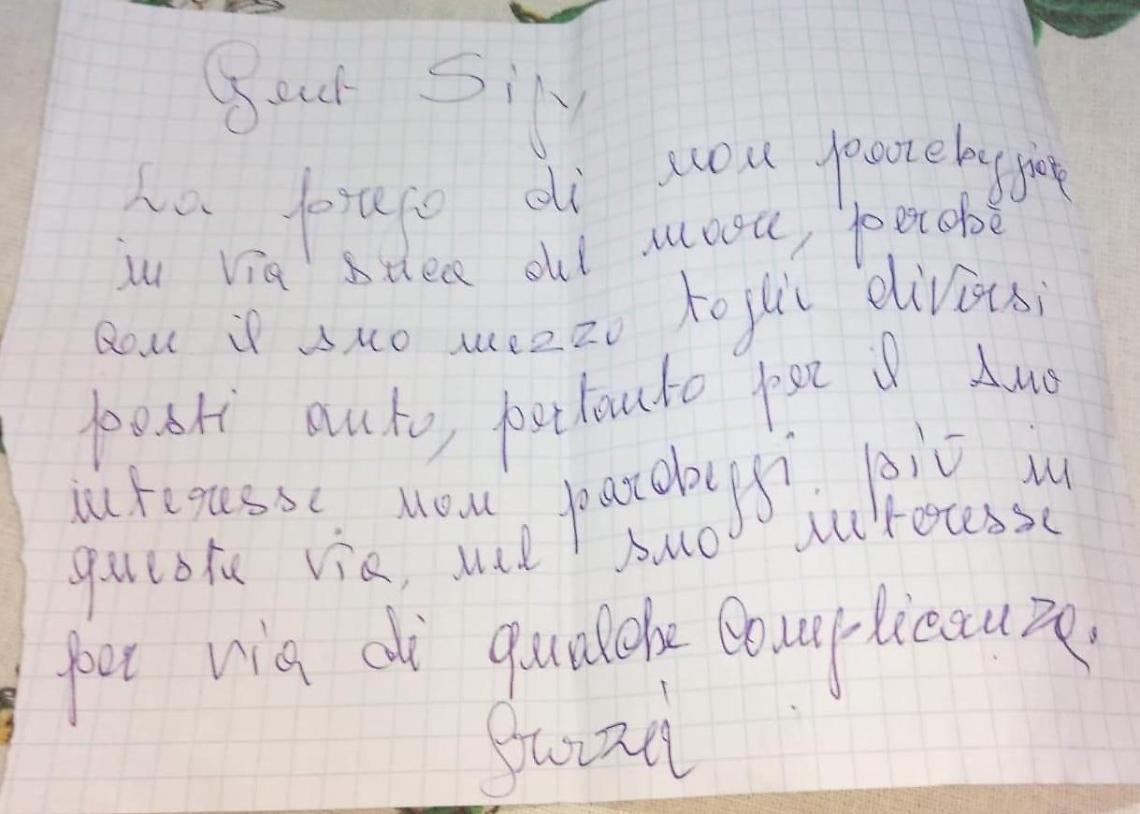 Gent Sig,
La prego di non parcheggiare
in via snea del mare, perchè
con il suo mezzo toglie diversi
posti auto, pertanto per il suo
interesse non parcheggi più in
questa via, nel suo interesse
per via di qualche complicanza.
Grazie